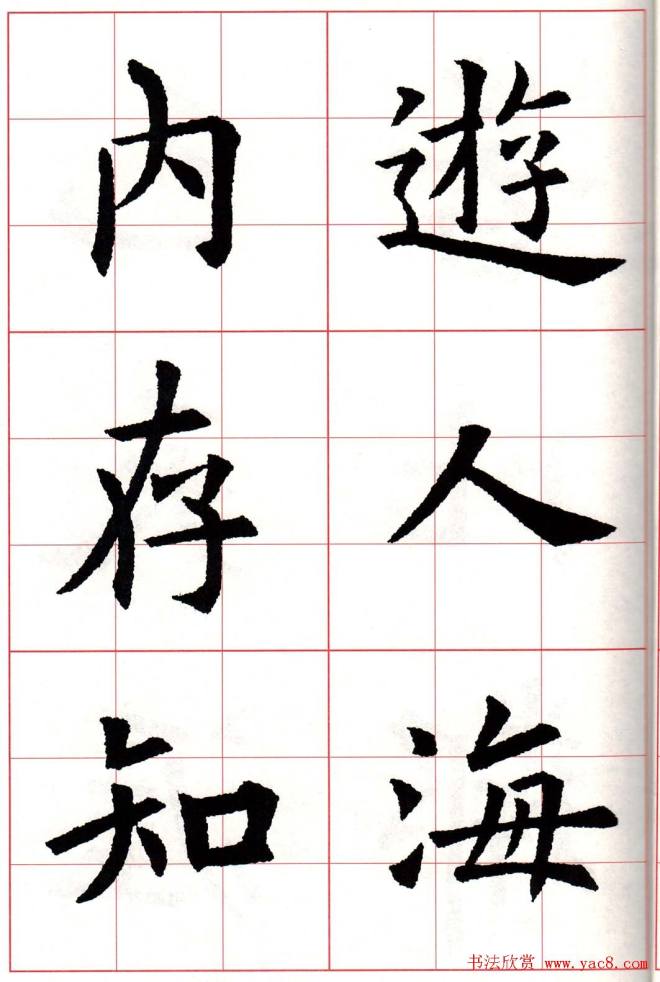 遊人海
内存知
书法欣赏 www.yac8.com